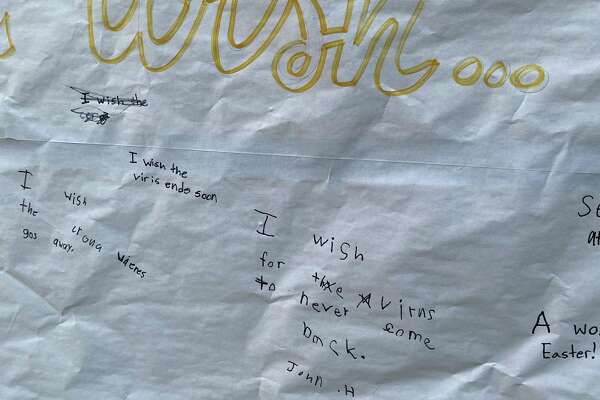 Wish...
I wish the
I wish the
viris ends soon
I wish
the crona wheres
gos away.
I wish
for the virns
to never come
back.
John .H
A wo
Easter!